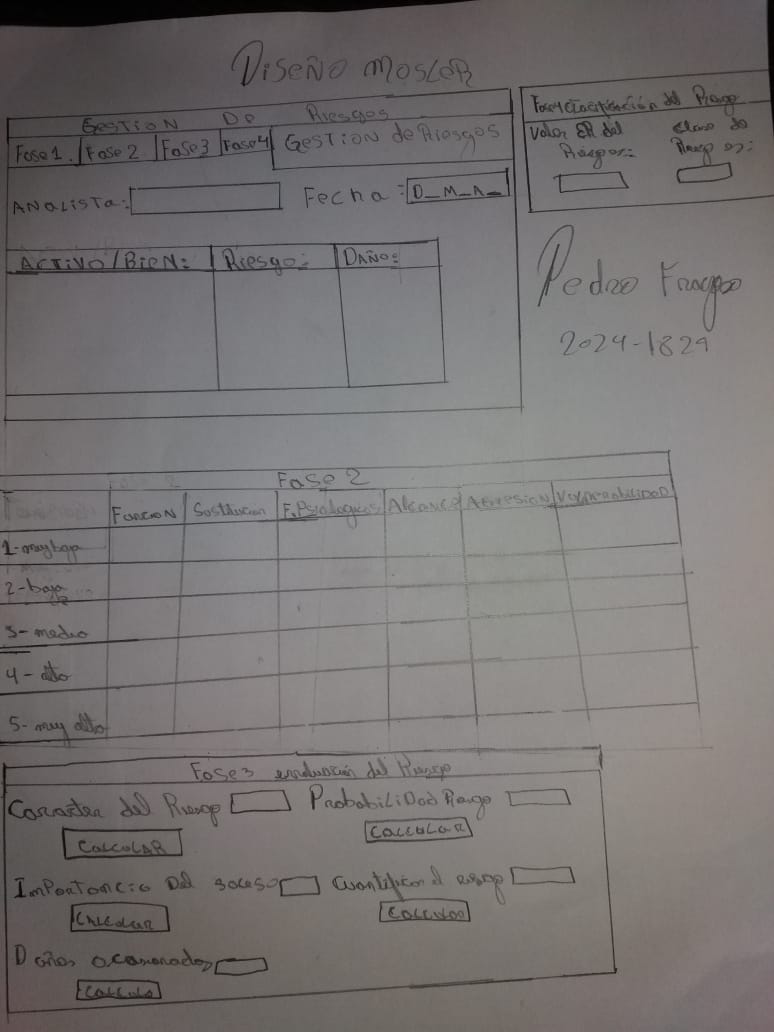 DISEÑO MOSLER
GESTION DE Riesgos
Fase 1. Fase 2 Fase3 Fase4 GESTION de Riesgos
ANALISTA: Fecha: D_M_A_
ACTIVO/BIEN: Riesgo: DAÑO:
Fase4 Clasificación del Riesgo
Valor ER del Clase de
Riesgo es: Riesgo es:
Pedro
2024-1829
Fase 2
FUNCION Sostitucion F.Psicologicos Alcance AGRESION VULNERABILIDAD
1-muy baja
2-baja
3-medio
4-alto
5-muy alto
Fase3 evaluación del Riesgo
Caracter del Riesgo Probabilidad Riesgo
CALCULAR CALCULAR
Importancia Del suceso Cuantificar el riesgo
CALCULAR
Daños ocasionados
CALCULO